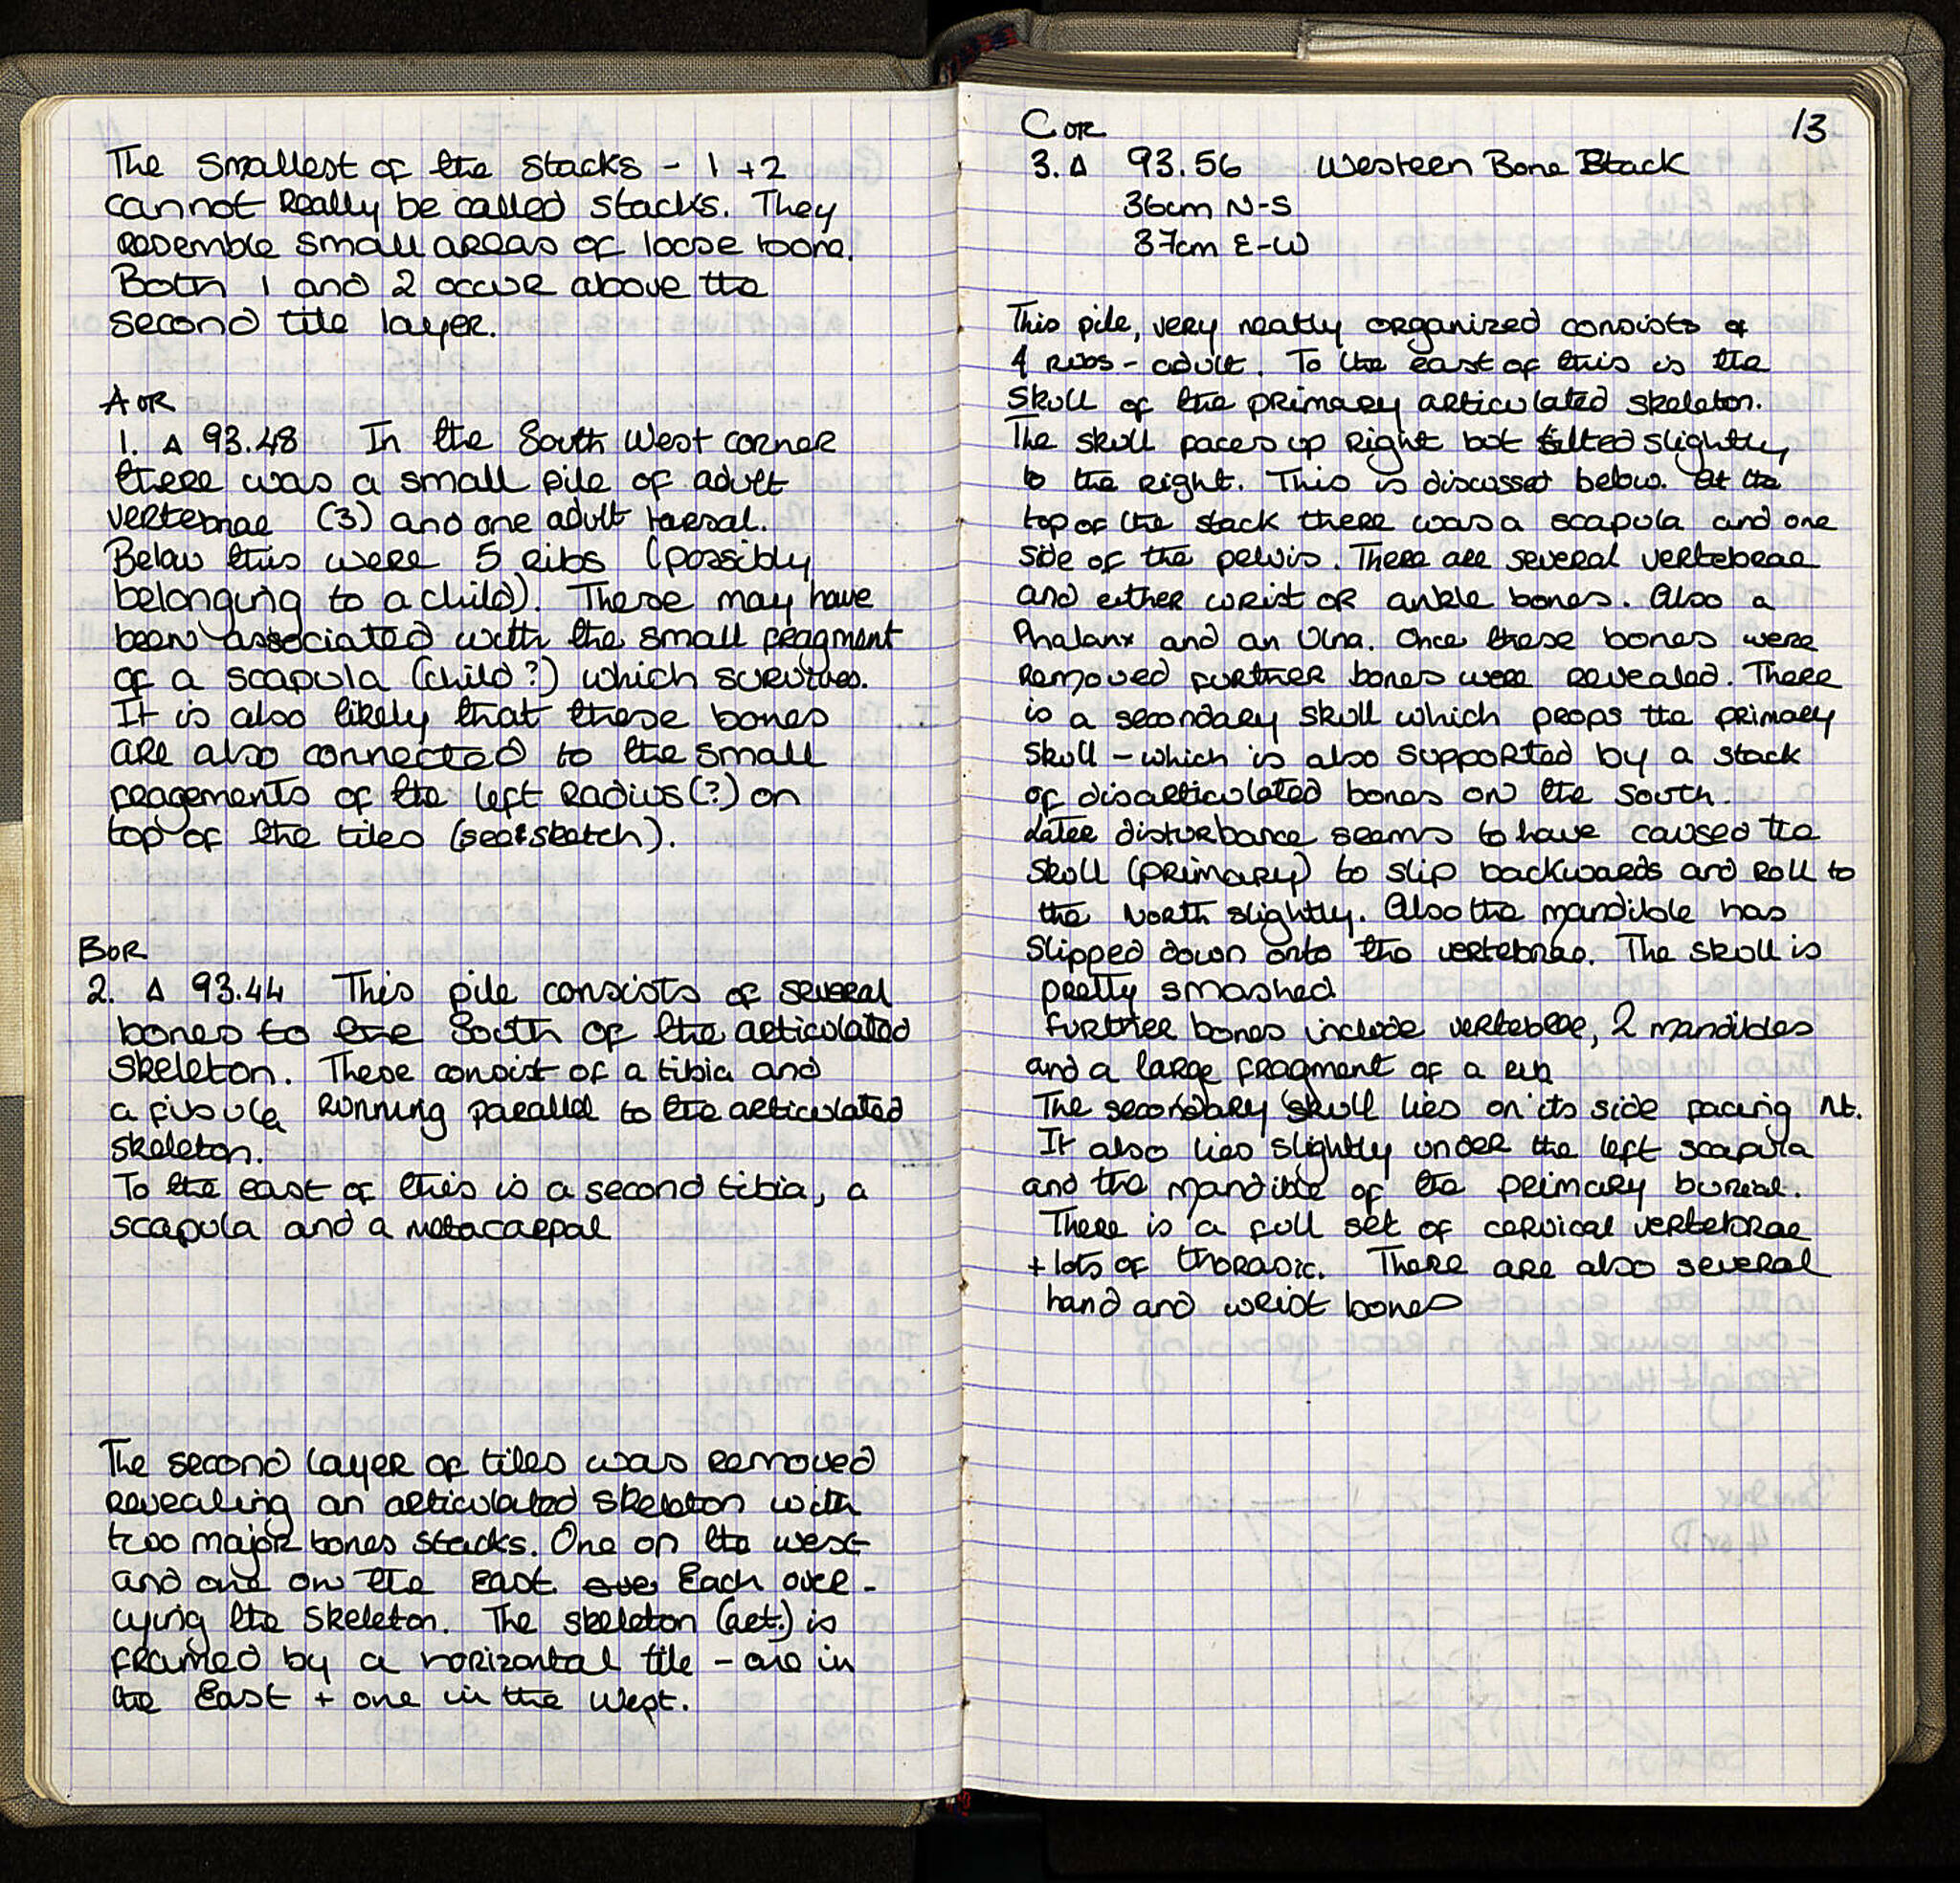 The smallest of the stacks - 1 + 2
cannot really be called stacks. They
resemble small areas of loose bone.
Both 1 and 2 occur above the
second tile layer.
A OR
1. Δ 93.48 In the South West corner
there was a small pile of adult
vertebrae (3) and one adult tarsal.
Below this were 5 ribs (possibly
belonging to a child). These may have
been associated with the small fragment
of a scapula (child?) which survives.
It is also likely that these bones
are also connected to the small
fragements of the left radius (?) on
top of the tiles (see sketch).
B OR
2. Δ 93.44 This pile consists of several
bones to the South of the articulated
skeleton. These consist of a tibia and
a fibula running parallel to the articulated
skeleton.
To the east of this is a second tibia, a
scapula and a metacarpal
The second layer of tiles was removed
revealing an articulated skeleton with
two major bones stacks. One on the west
and one on the East. Each over-
lying the skeleton. The skeleton (art.) is
framed by a horizontal tile - one in
the East + one in the West.
13
C OR
3. Δ 93.56 Western Bone Stack
36cm N-S
37cm E-W
This pile, very neatly organized consists of
4 ribs - adult. To the east of this is the
skull of the primary articulated skeleton.
The skull faces up right but tilted slightly
to the right. This is discussed below. At the
top of the stack there was a scapula and one
side of the pelvis. There are several vertebrae
and either wrist or ankle bones. Also a
Phalanx and an Ulna. Once these bones were
removed further bones were revealed. There
is a secondary skull which props the primary
skull - which is also supported by a stack
of disarticulated bones on the South.
Later disturbance seems to have caused the
skull (primary) to slip backwards and roll to
the North slightly. Also the mandible has
slipped down onto the vertebrae. The skull is
pretty smashed
Further bones include vertebrae, 2 mandibles
and a large fragment of a rib
The secondary skull lies on its side facing Nt.
It also lies slightly under the left scapula
and the mandible of the primary burial.
There is a full set of cervical vertebrae
+ lots of thoracic. There are also several
hand and wrist bones